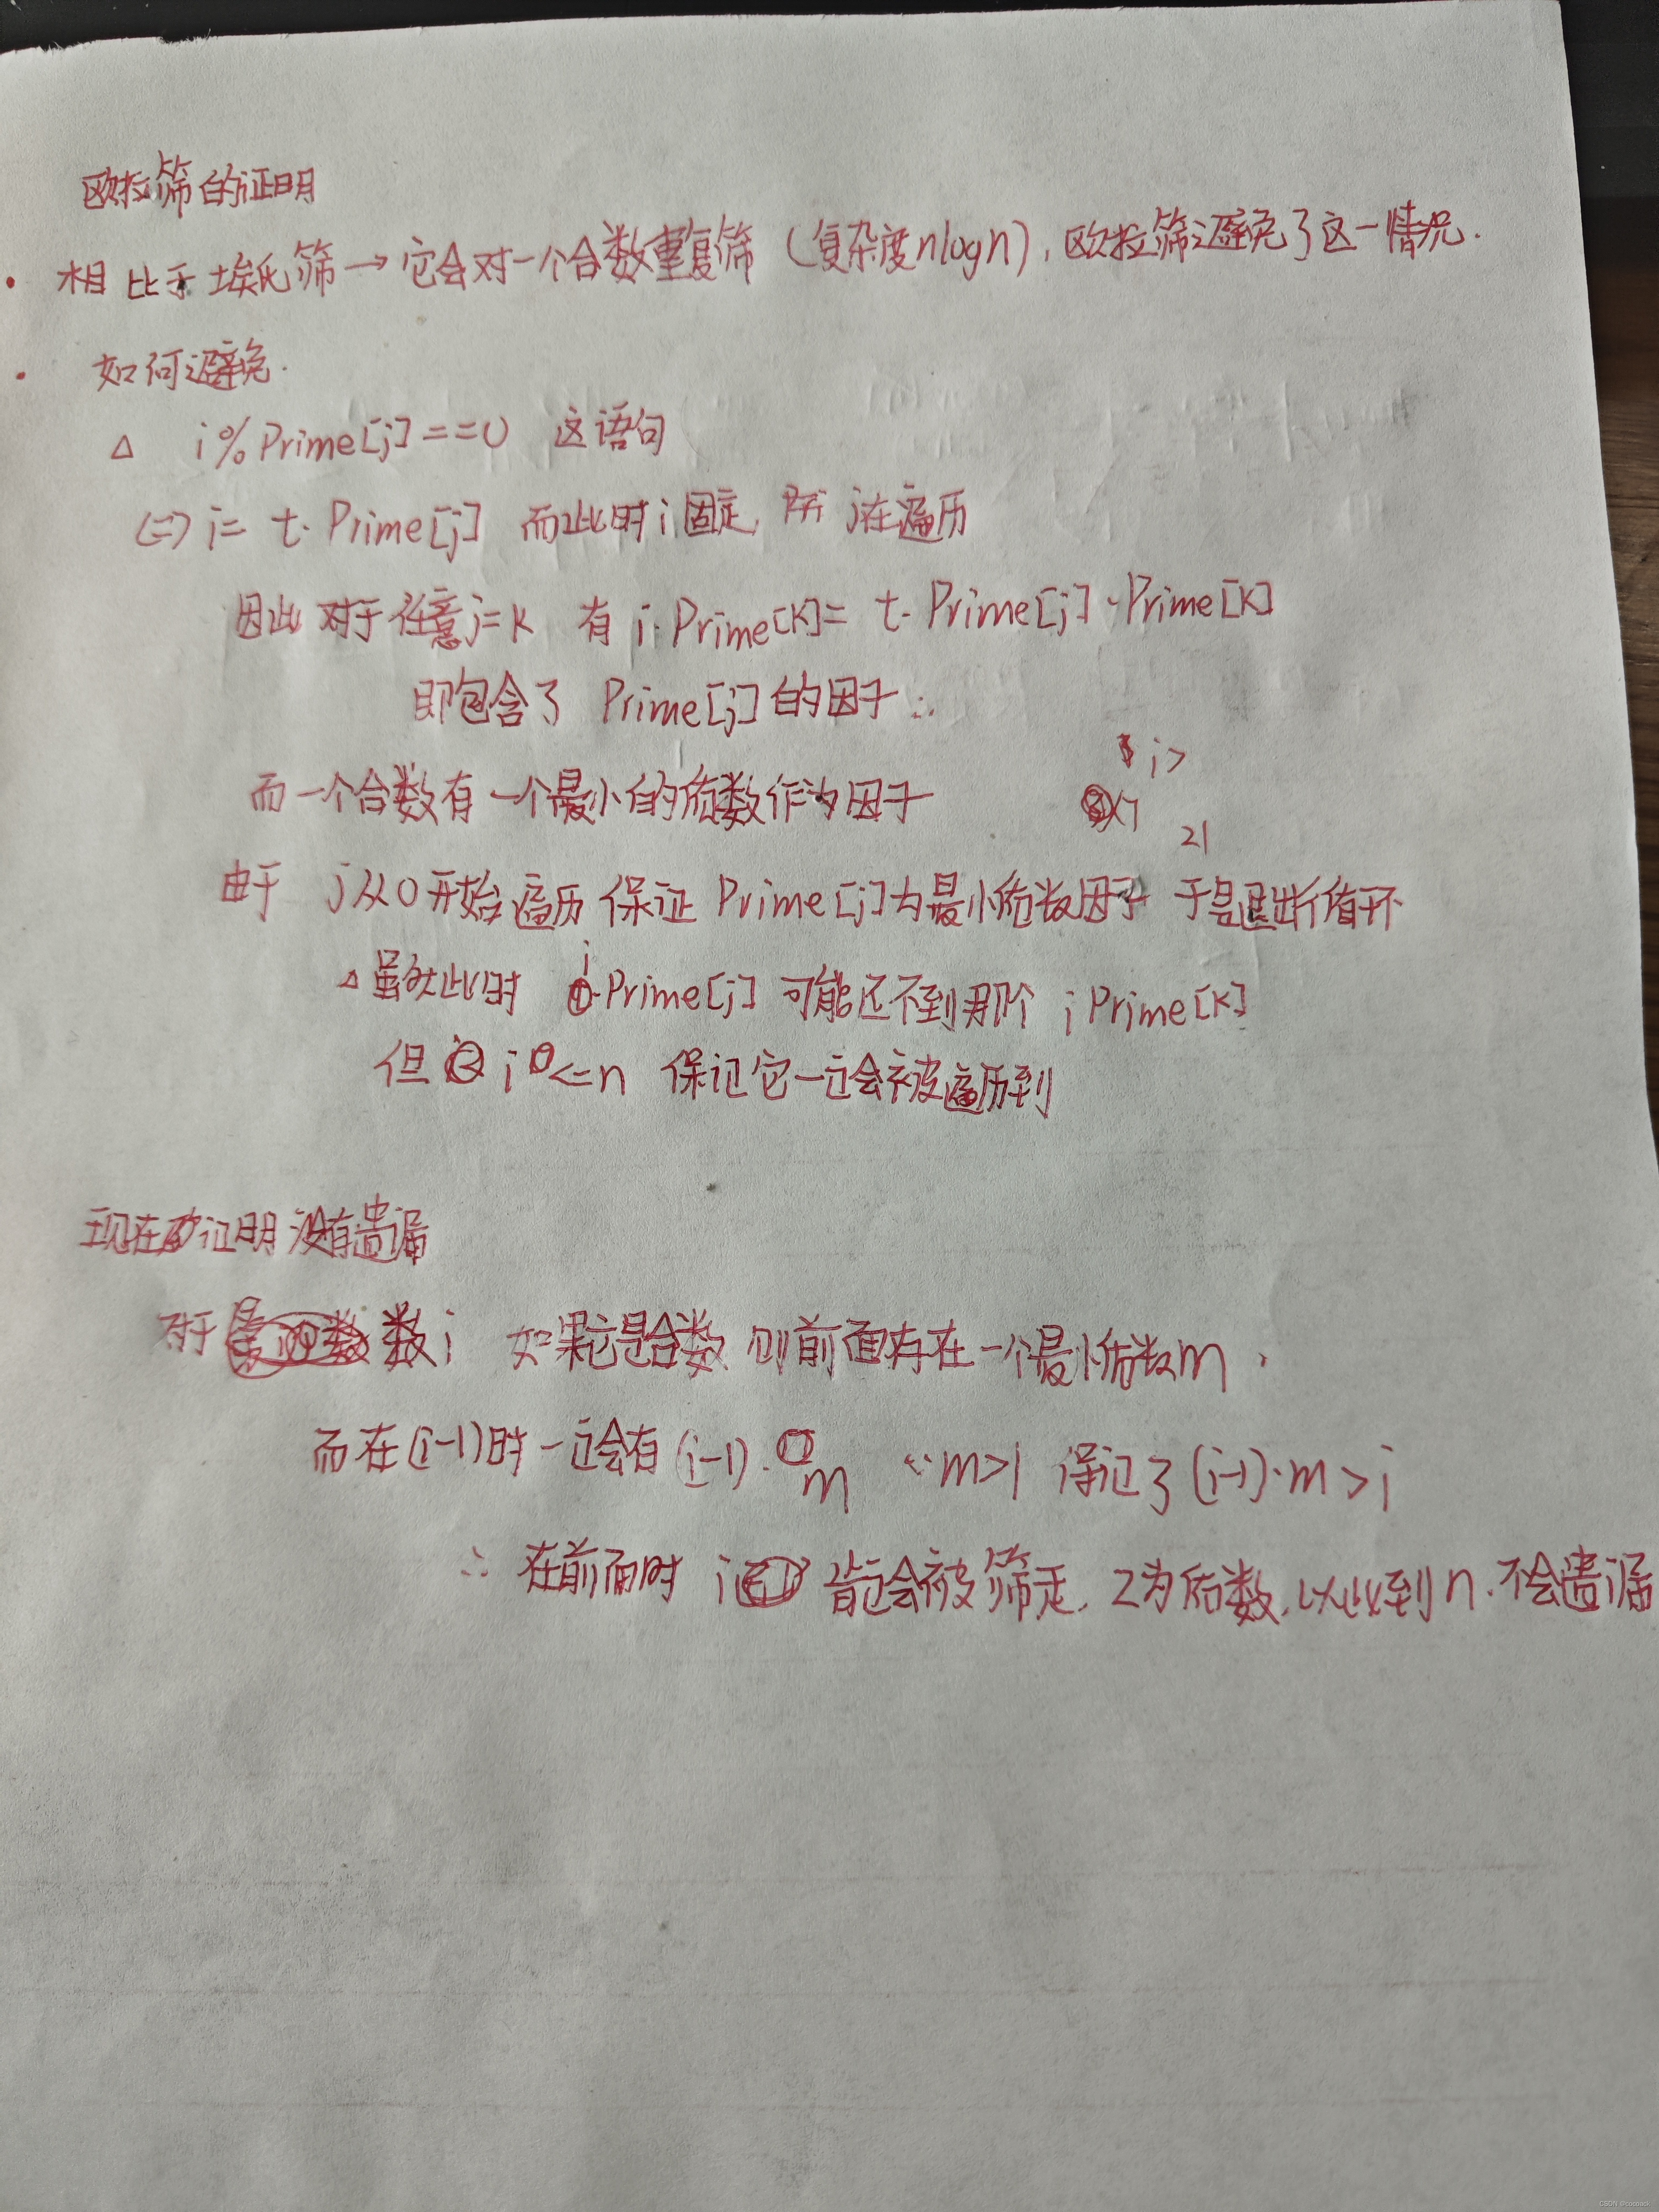 欧拉筛的证明
· 相比于埃氏筛→它会对一个合数重复筛（复杂度nlogn），欧拉筛避免了这一情况.
· 如何避免.
△ i%Prime[j]==0 这语句
(=) i= t·Prime[j] 而此时i固定, 所 j在遍历
因此对于任意j=k 有 i·Prime[k]= t·Prime[j]·Prime[k]
即包含了 Prime[j]的因子∴
i>
而一个合数有一个最小的质数作为因子
21
由于 j从0开始遍历 保证 Prime[j]为最小质数因子 于是退断循环
△虽然此时 i·Prime[j] 可能还不到那个 i Prime[k]
但 i<=n 保证它一定会被遍历到
现在 证明没有遗漏
对于 数i 如果它是合数 则前面存在一个最小质数m.
而在(i-1)时一定会有(i-1)·m ∵m>1 保证了(i-1)·m>i
∴ 在前面时 i 肯定会被筛走, 2为质数, 以此到n.不会遗漏
CSDN